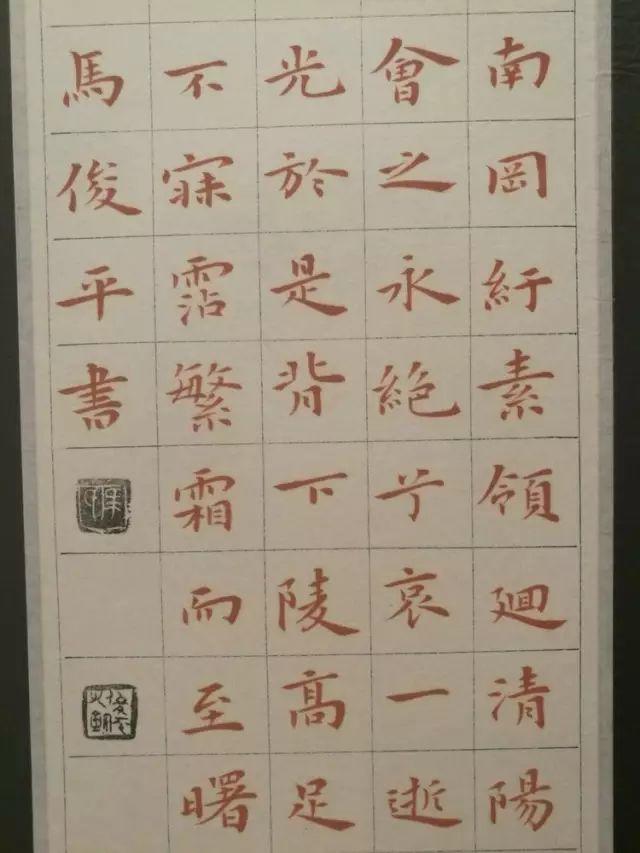 南岡紆素領廻清陽
會之永絶兮哀一逝
光於是背下陵高足
不寐霑繁霜而至曙
馬俊平書